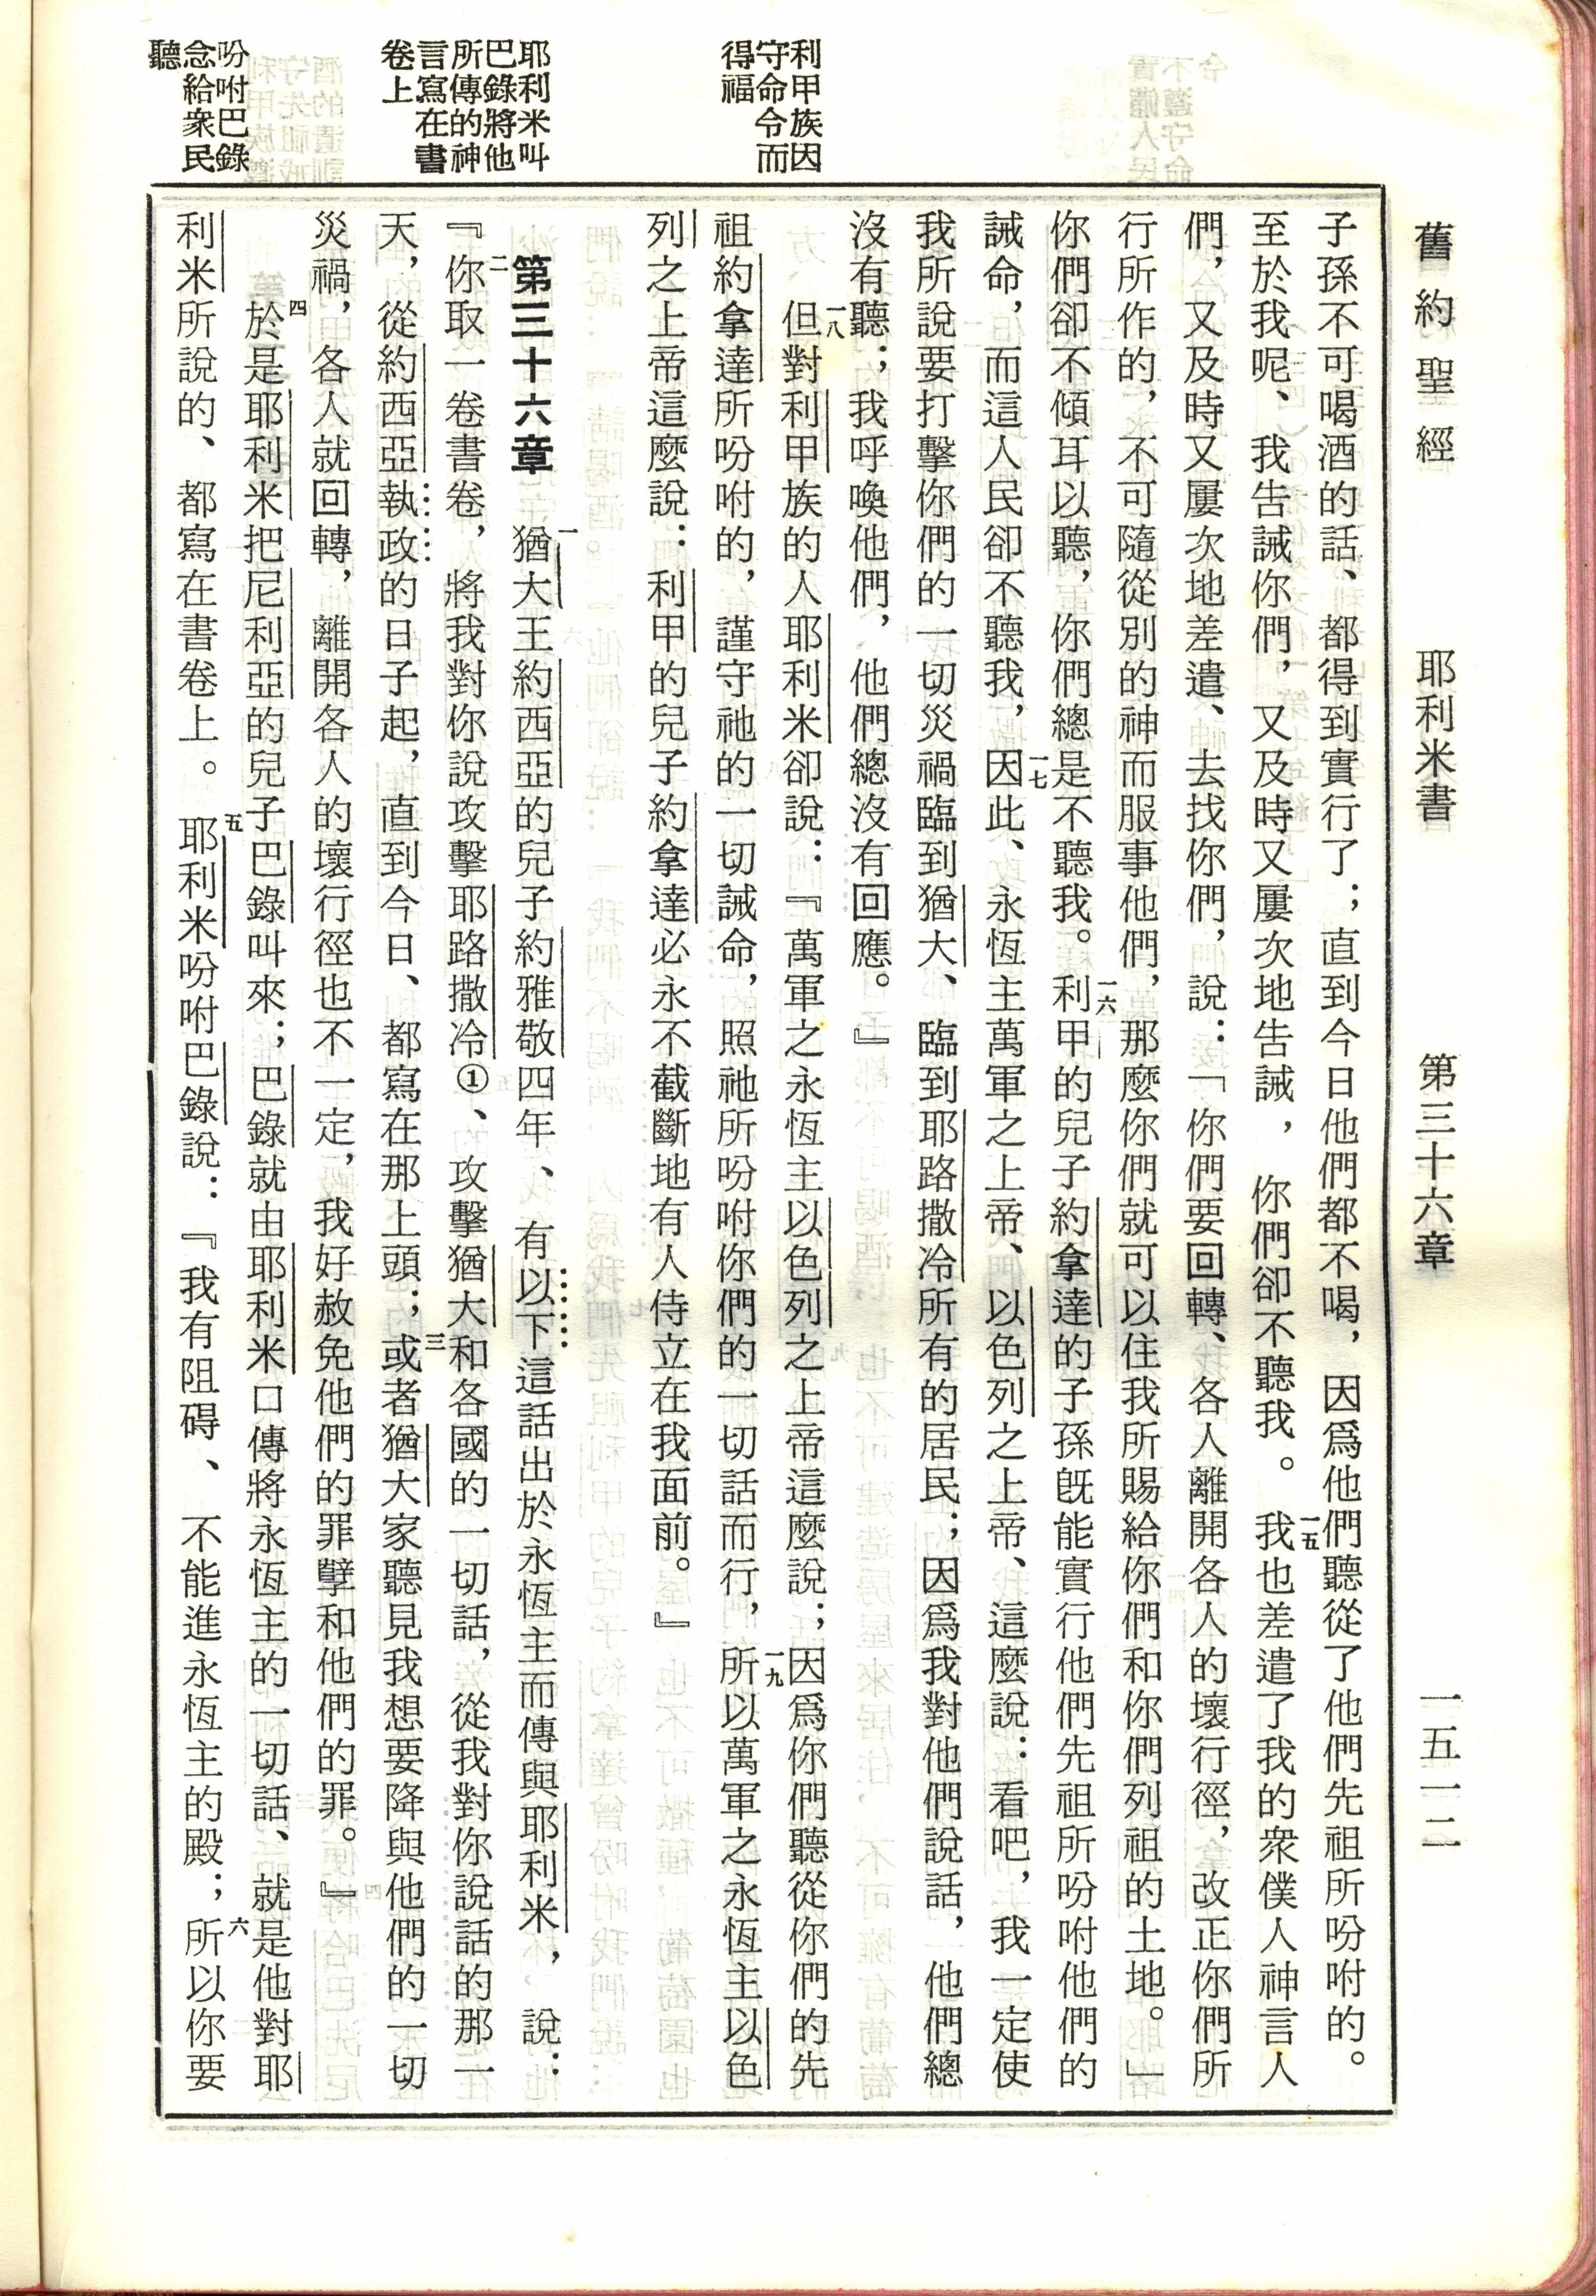 舊約聖經　耶利米書　第三十六章　一五一二
子孫不可喝酒的話、都得到實行了；直到今日他們都不喝，因爲他們聽從了他們先祖所吩咐的。
至於我呢、我告誡你們，又及時又屢次地告誡，你們卻不聽我。一五我也差遣了我的衆僕人神言人
們，又及時又屢次地差遣、去找你們，說：「你們要回轉、各人離開各人的壞行徑，改正你們所
行所作的，不可隨從別的神而服事他們，那麼你們就可以住我所賜給你們和你們列祖的土地。」
你們卻不傾耳以聽，你們總是不聽我。一六利甲的兒子約拿達的子孫旣能實行他們先祖所吩咐他們的
誡命，而這人民卻不聽我，一七因此、永恆主萬軍之上帝、以色列之上帝、這麼說：看吧，我一定使
我所說要打擊你們的一切災禍臨到猶大、臨到耶路撒冷所有的居民；因爲我對他們說話，他們總
沒有聽；我呼喚他們，他們總沒有回應。』
一八但對利甲族的人耶利米卻說：『萬軍之永恆主以色列之上帝這麼說；因爲你們聽從你們的先
祖約拿達所吩咐的，謹守祂的一切誡命，照祂所吩咐你們的一切話而行，一九所以萬軍之永恆主以色
列之上帝這麼說：利甲的兒子約拿達必永不截斷地有人侍立在我面前。』
第三十六章　一猶大王約西亞的兒子約雅敬四年、有以下這話出於永恆主而傳與耶利米，說：
二『你取一卷書卷，將我對你說攻擊耶路撒冷①、攻擊猶大和各國的一切話，從我對你說話的那一
天，從約西亞執政的日子起，直到今日、都寫在那上頭；三或者猶大家聽見我想要降與他們的一切
災禍，各人就回轉，離開各人的壞行徑也不一定，我好赦免他們的罪孽和他們的罪。』
四於是耶利米把尼利亞的兒子巴錄叫來；巴錄就由耶利米口傳將永恆主的一切話、就是他對耶
利米所說的、都寫在書卷上。五耶利米吩咐巴錄說：『我有阻碍、不能進永恆主的殿；六所以你要
利甲族因
守命令而
得福
耶利米叫
巴錄將他
所傳的神
言寫在書
卷上
吩咐巴錄
念給衆民
聽